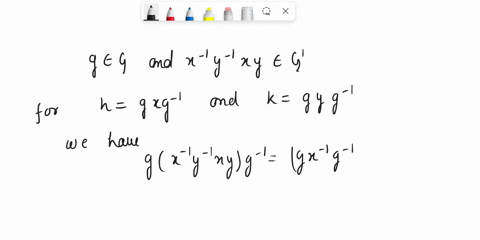 g ∈ G and x⁻¹y⁻¹xy ∈ G'
for h = gxg⁻¹ and k = gyg⁻¹
we have
g(x⁻¹y⁻¹xy)g⁻¹ = (gx⁻¹g⁻¹